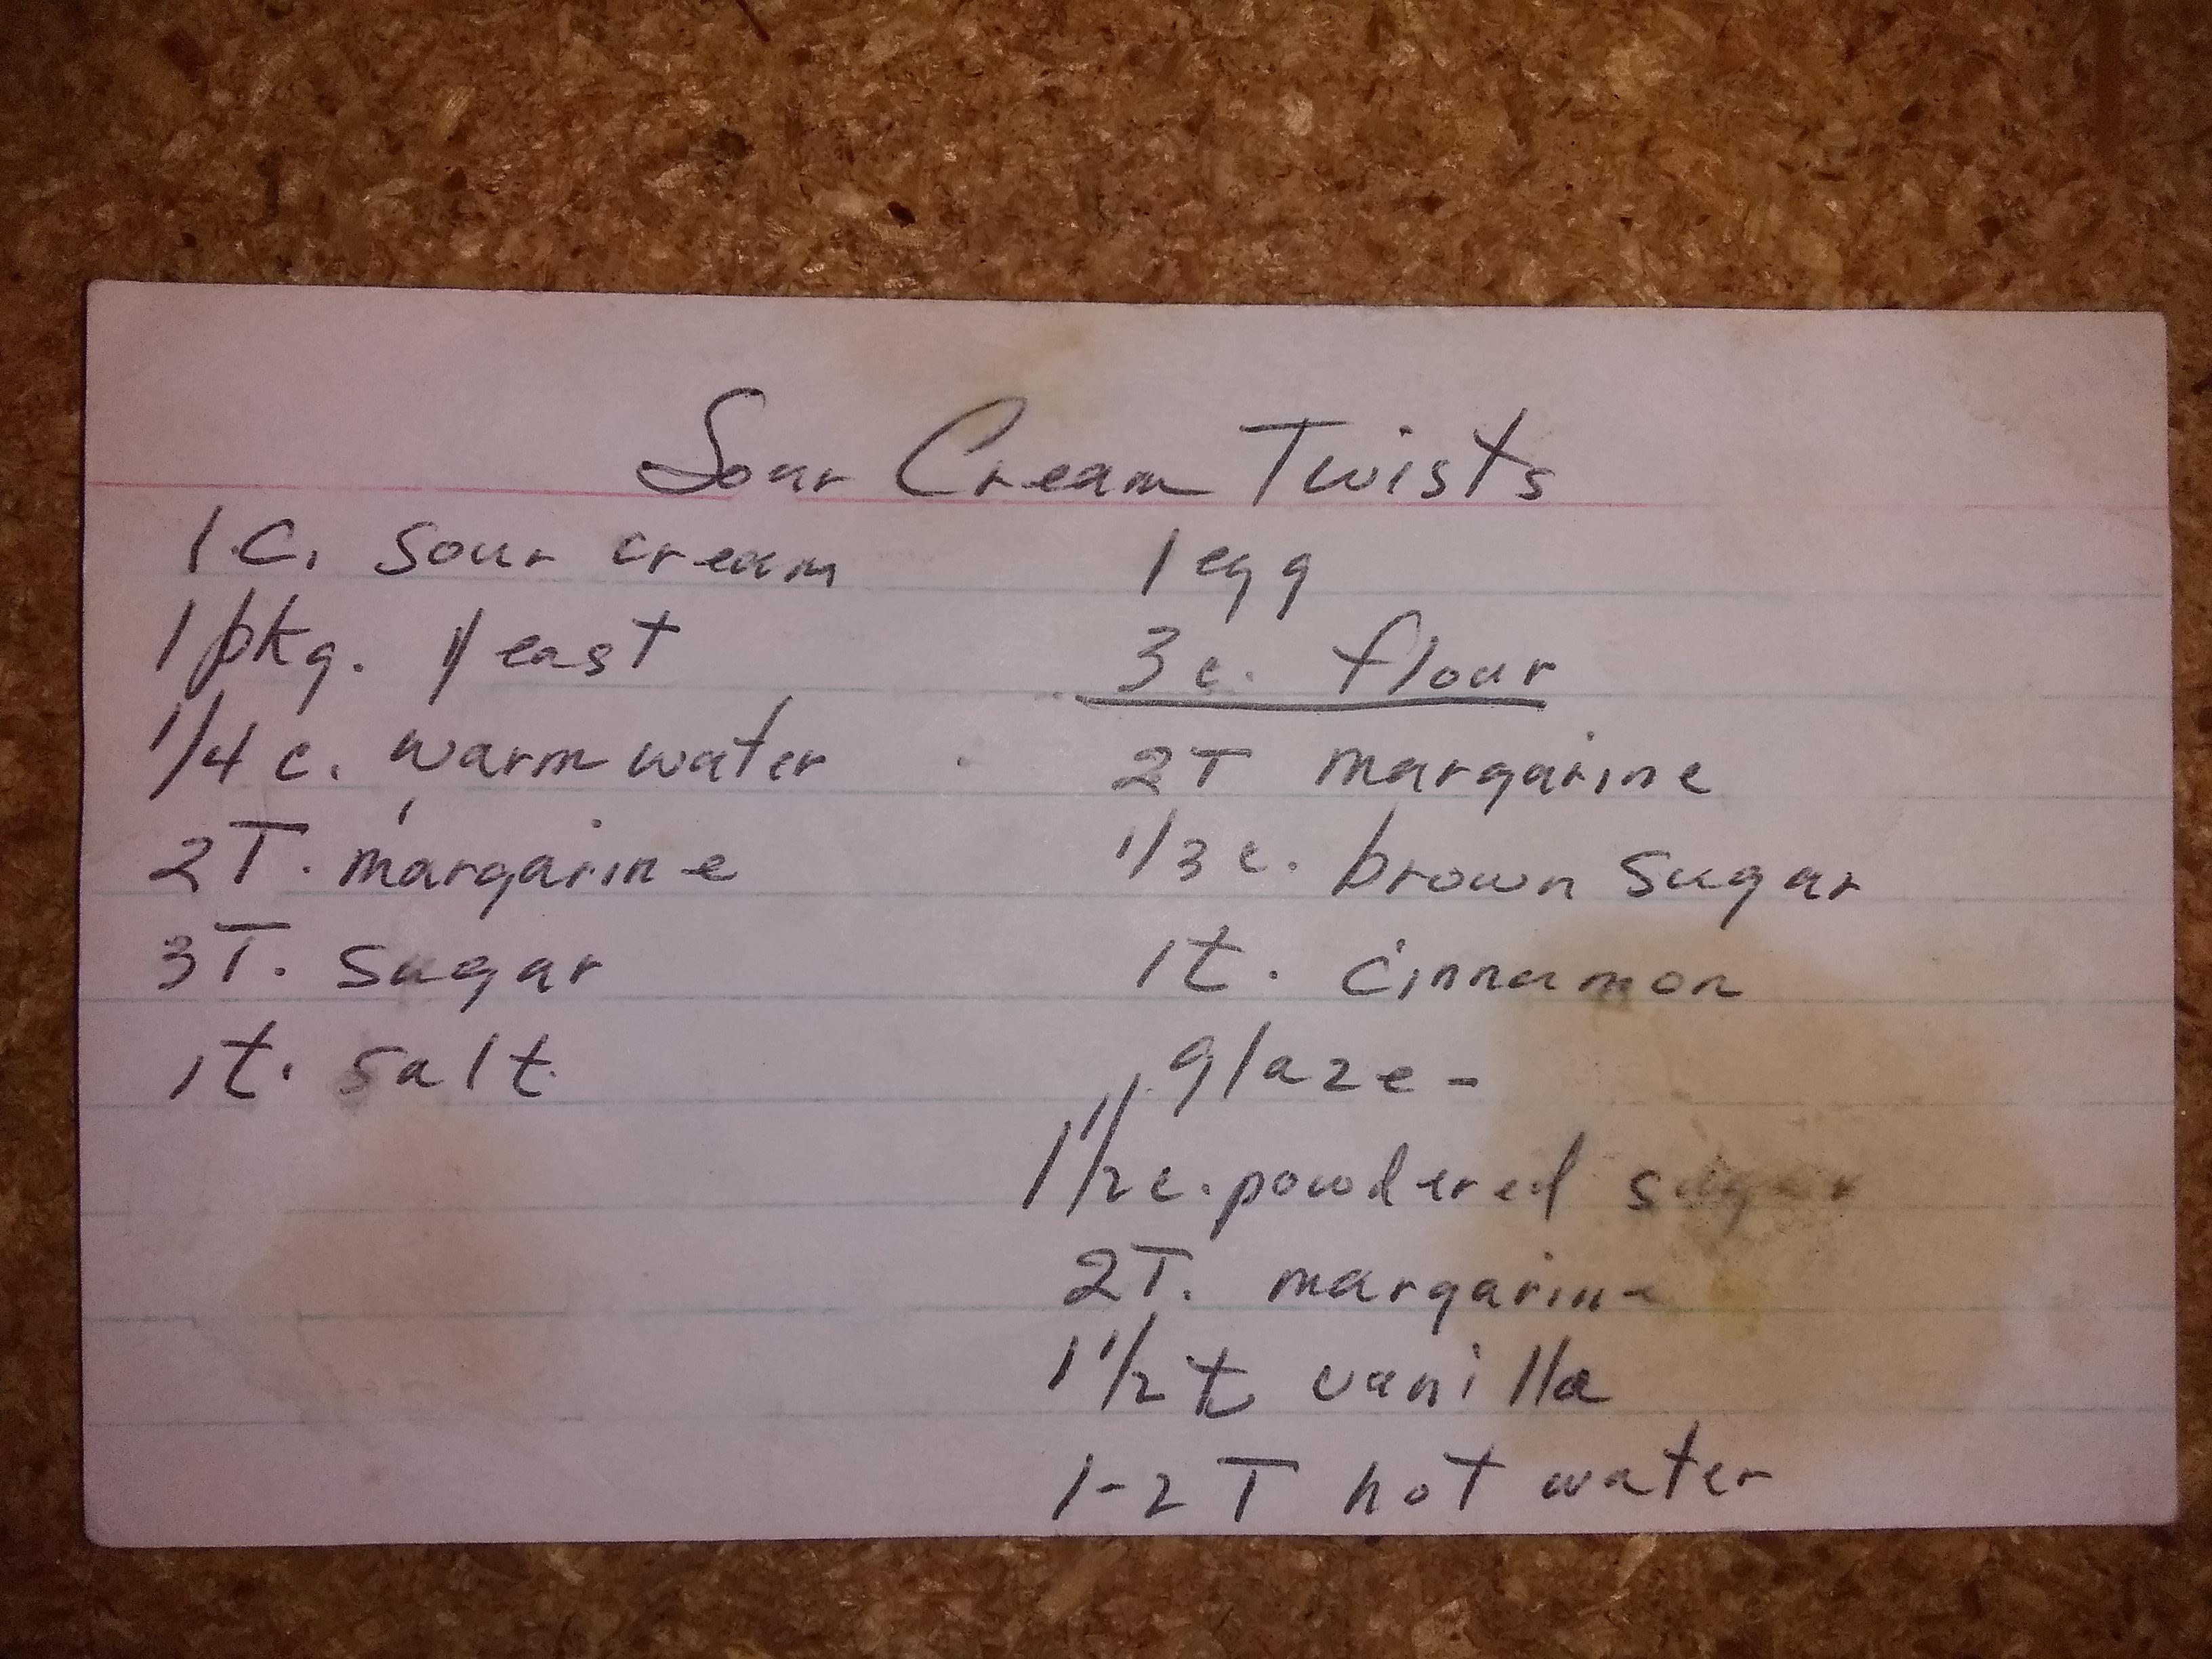 Sour Cream Twists
1 c. sour cream
1 pkg. yeast
1/4 c. warm water
2 T. margarine
3 T. sugar
1 t. salt
1 egg
3 c. flour
2 T margarine
1/3 c. brown sugar
1 t. cinnamon
glaze -
1 1/2 c. powdered sugar
2 T. margarine
1 1/2 t vanilla
1-2 T hot water